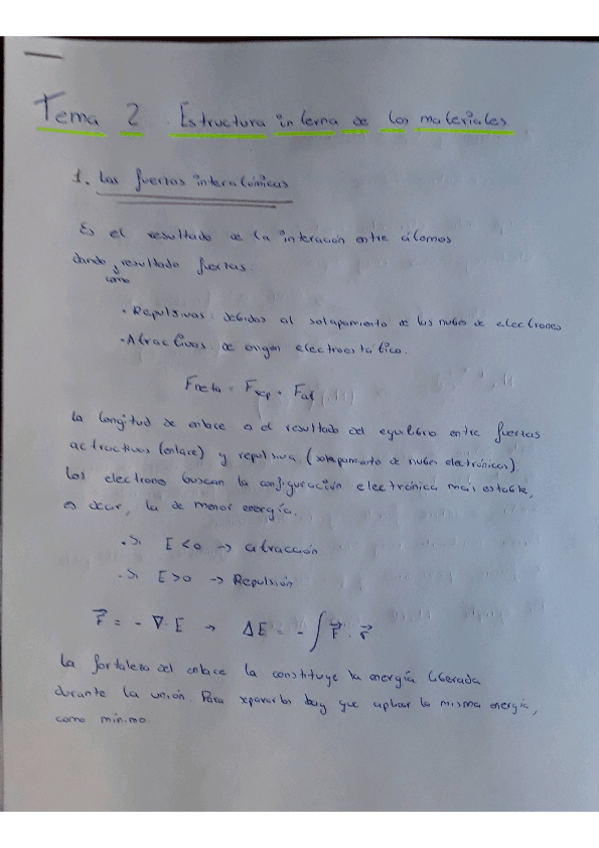 Tema 2. Estructura interna de los materiales
1. Las fuerzas interatómicas
Es el resultado de la interación entre átomos
dando como resultado fuerzas:
· Repulsivas: debidas al solapamiento de las nubes de electrones
· Atractivas: de origen electroestático.
Fneta = Frep + Fat
La longitud de enlace es el resultado del equilibrio entre fuerzas
actractivas (enlace) y repulsiva (solapamiento de nubes electrónicas).
Los electrones buscan la configuración electrónica más estable,
es decir, la de menor energía.
· Si E<0 → atracción
· Si E>0 → Repulsión
F⃗ = - ∇·E → ΔE = - ∫ F⃗ · r⃗
La fortaleza del enlace la constituye la energía liberada
durante la unión. Para separarlos hay que aplicar la misma energía,
como mínimo.